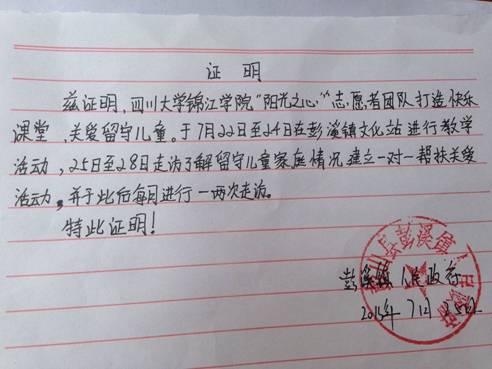 证 明
兹证明，四川大学锦江学院“阳光之心”志愿者团队打造快乐
课堂，关爱留守儿童。于7月22日至24日在彭溪镇文化站进行教学
活动，25日至28日走访了解留守儿童家庭情况建立一对一帮扶关爱
活动，并于此后每月进行一两次走访。
特此证明！
彭溪镇人民政府
2015年7月